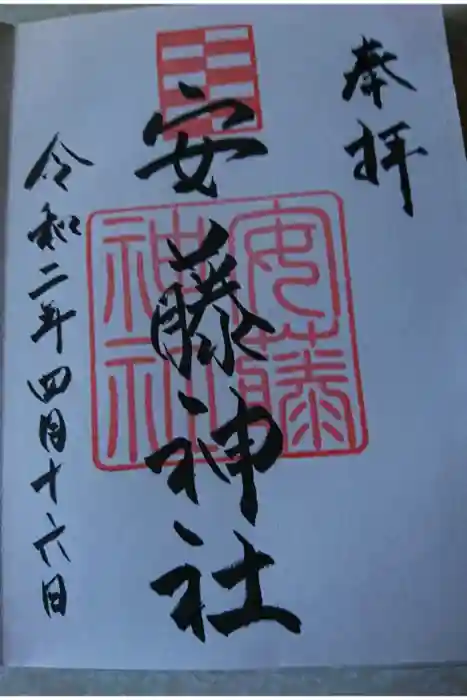 奉拝
安藤神社
安藤
神社
令和二年四月十六日